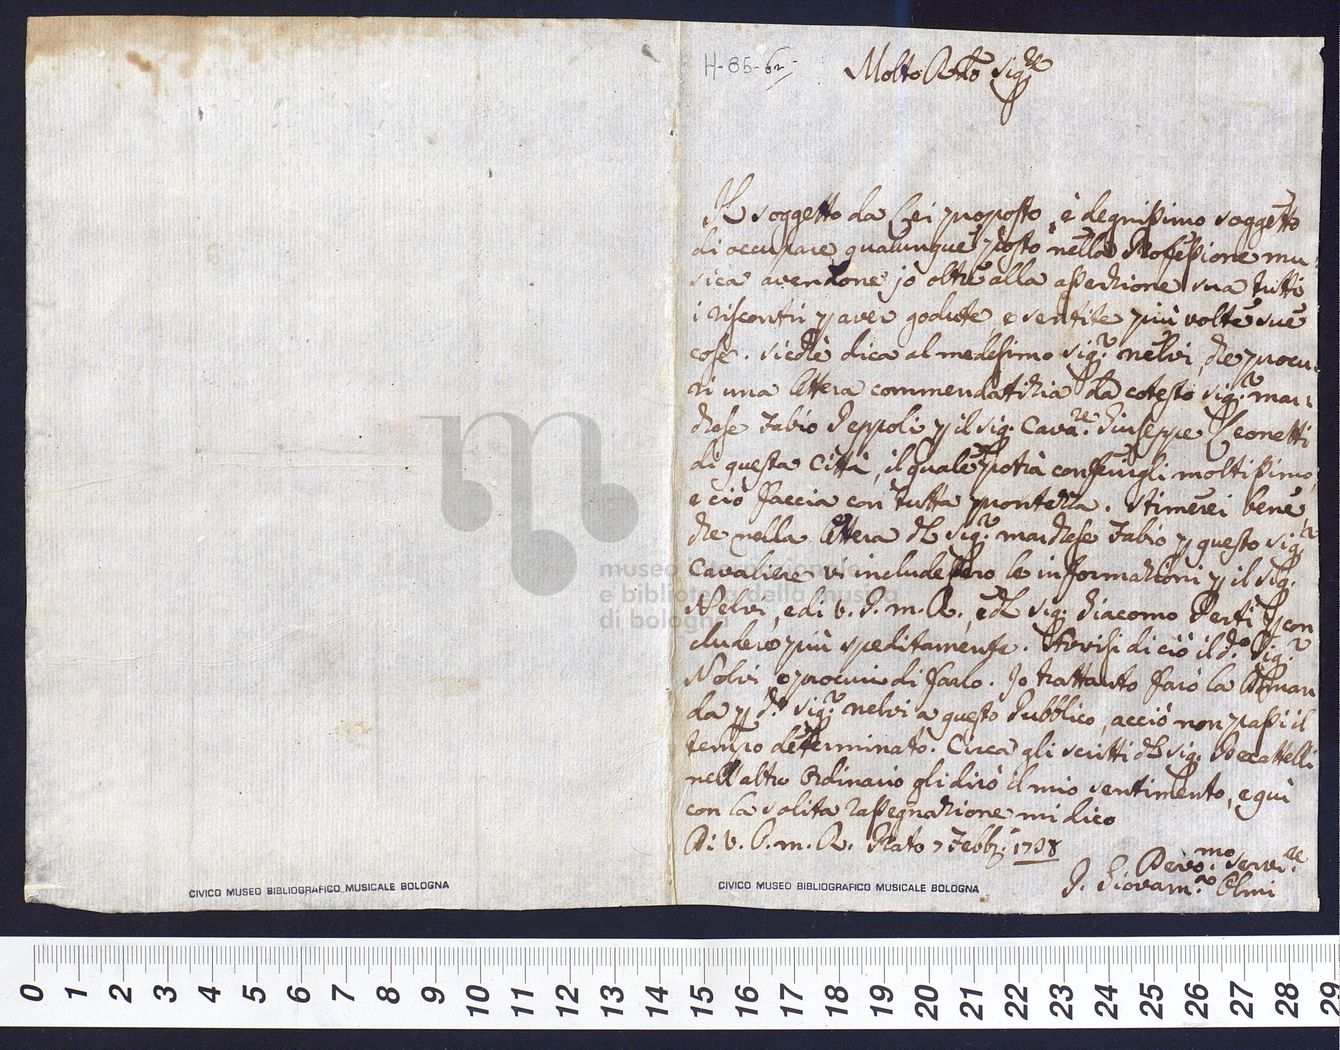 H-86-62
Molto Rdo Sigre
Il soggetto da Lei proposto, è degnissimo soggetto
di occupare qualunque posto nella Professione mu
sica avendone jo oltre alla asserzione sua tutti
i riscontri p aver godute, e sentite più volte sue
cose. sicché dica al medesimo Sigr. Nelvi, che procu
ri una lettera commendatizia da cotesto Sigr. mar
chese Fabio Peppoli p il Sig. Cavare. Giuseppe Leonetti
di questa Città, il quale potrà conferirgli moltissimo,
e ciò faccia con tutta prontezza. Stimerei bene
che nella lettera del Sigr. marchese Fabio p questo Sigr.
Cavaliere vi includessero le informazioni p il Sig.
Nelvi, e di V. P. m. R., e del Sig. Giacomo Perti p con
cludere più speditamente. Avvisi di ciò il do. Sigr.
Nelvi e procuri di farlo. Io trattanto farò la diman
da p do. Sigr. Nelvi a questo Pubblico, acciò non passi il
tempo determinato. Circa gli scritti del Sig. Beccattelli
nell altro Ordinario gli dirò il mio sentimento, e qui
con la solita rassegnazione mi dico
Di V. P. m. R. Prato 7 Febbr. 1738
Devomo. Servire.
F. Giovam.a Olmi
CIVICO MUSEO BIBLIOGRAFICO MUSICALE BOLOGNA
CIVICO MUSEO BIBLIOGRAFICO MUSICALE BOLOGNA
museo internazionale
e biblioteca della musica
di bologna
0 1 2 3 4 5 6 7 8 9 10 11 12 13 14 15 16 17 18 19 20 21 22 23 24 25 26 27 28 29